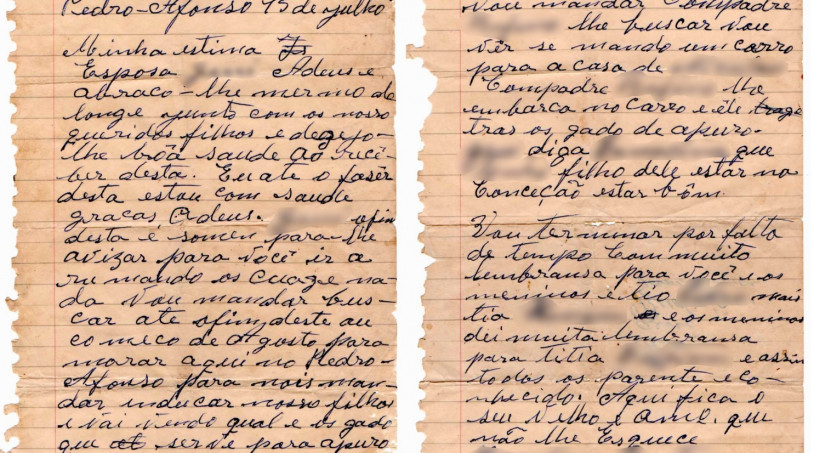 Pedro-Afonso 15 de julho
Minha estima
Esposa Adeus e
abraco-lhe mermo de
longe junto com os nosso
queridos filhos e dezejo-
lhe bôã saude ao reci-
ber desta. Eu ate o fasêr
desta estou com saude
gracas Adeus. ofin
desta é somen para lhe
avizar para você ir a
rumando os cuaze na-
da vou mandar bus-
car ate ofim deste au
comeco de Agusto para
morar aqui no Pedro-
Afonso para nois man-
dar inducar nosso filhos
e vai vendo qual e os gado
que serve para apuro
vou mandar Compadre
lhe buscar vou
vêr se mando um carro
para a casa de
Compadre lhe
embarca no carro e êle
tras os gado de apuro.
diga que
filho dele estar na
Conceção estar bôm
Vou terminar por falta
de tempo Com muito
lembransa para você e os
meninos e tio mais
tia e os meninos
dei muita lembransa
para titia e assin
todos os parente e co-
nhecido. Aqui fica o
seu velho e aml. que
não lhe Esquece